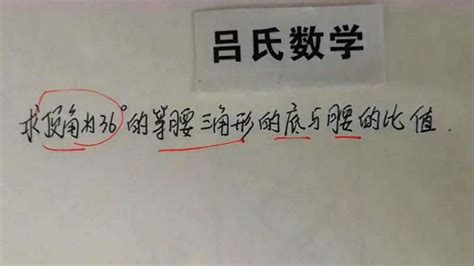 吕氏数学
求顶角为36°的等腰三角形的底与腰的比值.